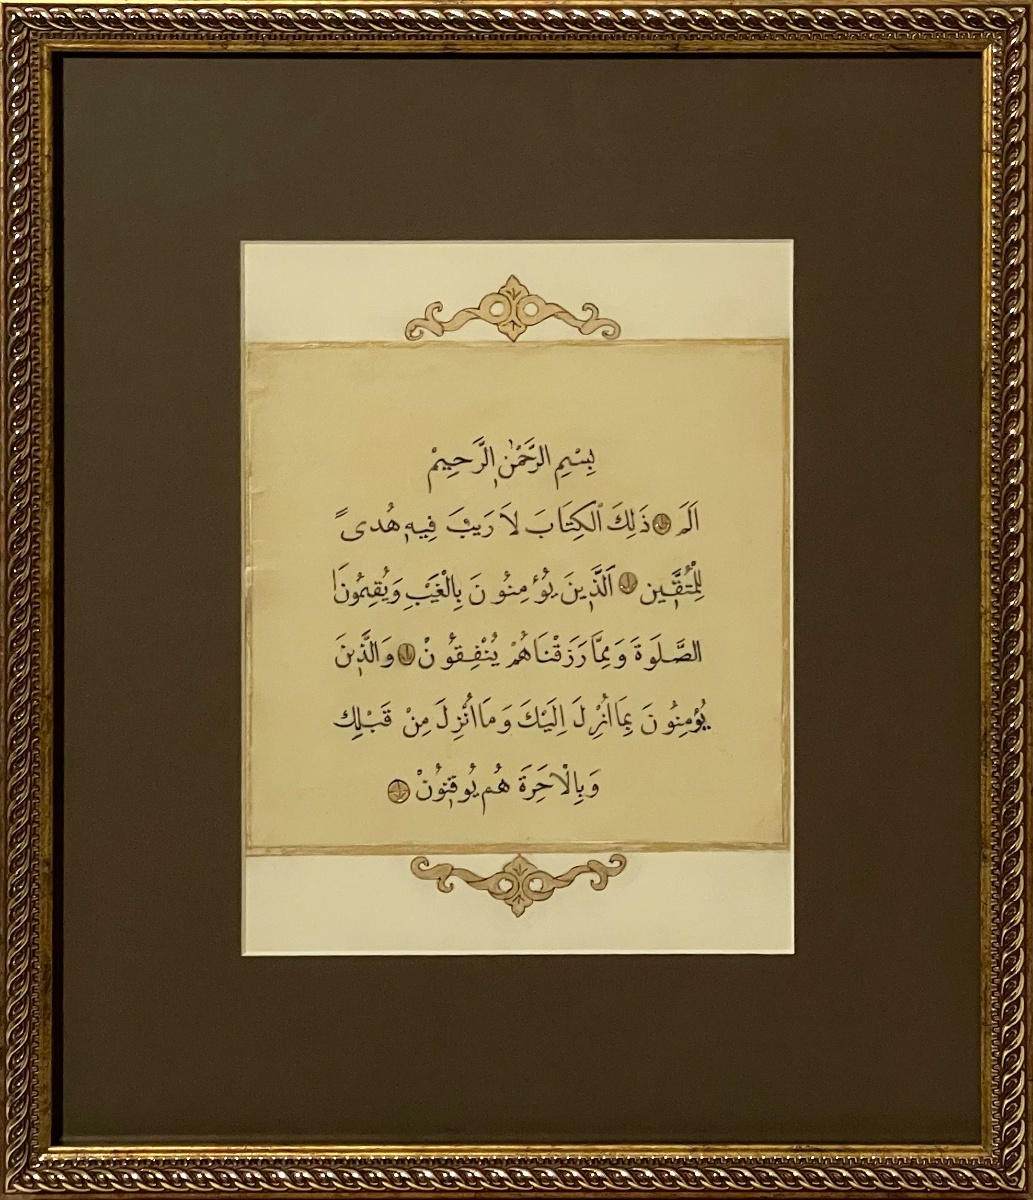 بِسْمِ الرَّحْمٰنِ الرَّحِيمْ
الَمَ ذَلِكَ الْكِتَابَ لاَ رَيْبَ فِيهِ هُدىً
لِلْمُتَّقِين اَلَّذِينَ يُؤْمِنُونَ بِالْغَيْبِ وَيُقِيمُونَ
الصَّلَوةَ وَمِمَّا رَزَقْنَاهُمْ يُنْفِقُونْ وَالَّذِينَ
يُؤْمِنُونَ بِمَا اُنْزِلَ اِلَيْكَ وَمَا اُنْزِلَ مِنْ قَبْلِك
وَبِالْاَخِرَةَ هُم يُوقِنُونْ